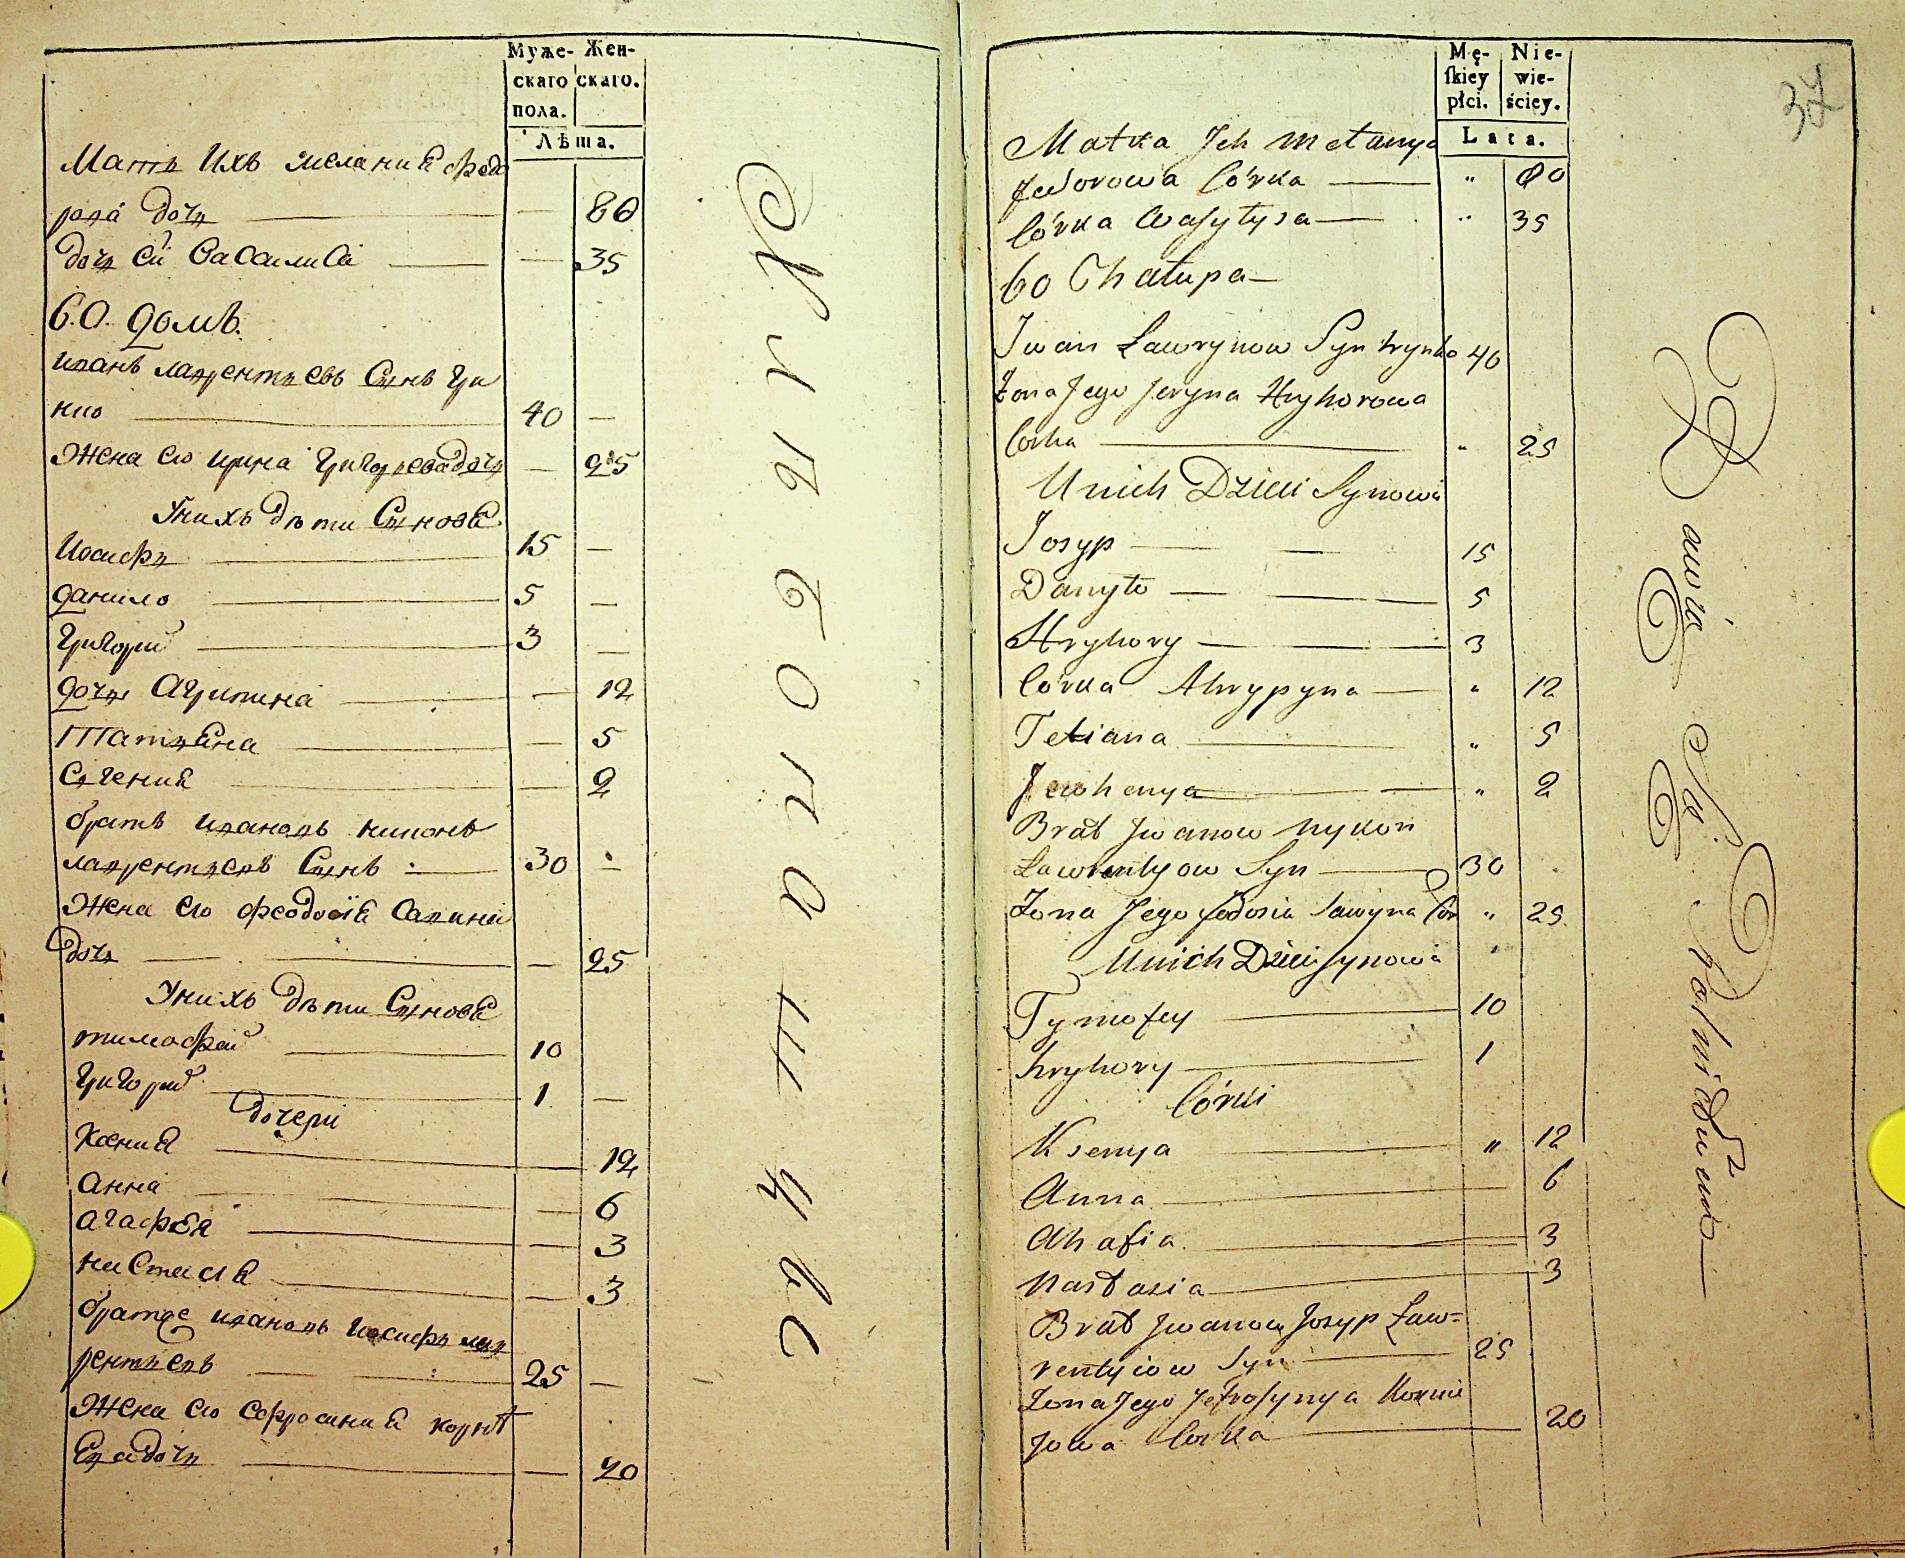 Муже- Жен-
скаго скаго.
пола.
Лѣта.
Мать Ихъ мелания федо
рова дочь — — 80
дочь ей Васалиса — — 35
60. домъ.
иванъ лаврентьевъ Сынъ Гри
нко — 40 —
Жена его ирина Григорьева дочь — 25
У нихъ дѣти Сыновя
Иосифъ — 15 —
данило — 5 —
Григорий — 3 —
дочь Агрипина — — 12
Татьяна — — 5
Евгения — — 2
братъ ивановъ никонъ
лаврентьевъ Сынъ — 30 —
Жена его феодосия Савина
дочь — — 25
У нихъ дѣти Сыновя
тимофей — 10
Григорий — 1 —
дочери
Ксения — 12
Анна — — 6
агафья — — 3
настасия — — 3
братъ ивановъ Иосифъ лав
рентьевъ — 25 —
Жена его Ефросиния корнѣ
Ева дочь — — 20
Mę- Nie-
skiey wie-
płci. ściey.
Lata.
37
Matka Jch Melanya
Fedorowa Córka — " 80
Córka Wasylysa — " 35
60 Chałupa —
Jwan Ławrynow Syn hrynko 40
Żona Jego Jeryna Hryhorowa
Corka — " 25
U nich Dzieci Synowie
Josyp — — 15
Danyło — — 5
Hryhory — 3
Córka Ahrypyna — " 12
Tetiana — " 5
Jewhenya — — " 2
Brat Jwanow Nykon
Ławrentyow Syn — 30
Żona Jego fedosia Sawyna Cór " 25
U nich Dzieci Synowie
Tymofey — 10
hryhory — 1
Córki
Ksenya — " 12
Anna — 6
Ahafia — 3
Nastasia — 3
Brat Jwanow Josyp Ław=
rentyiow Syn — 25
Żona Jego Jefrosynya Kornie
jowa Corka — 20